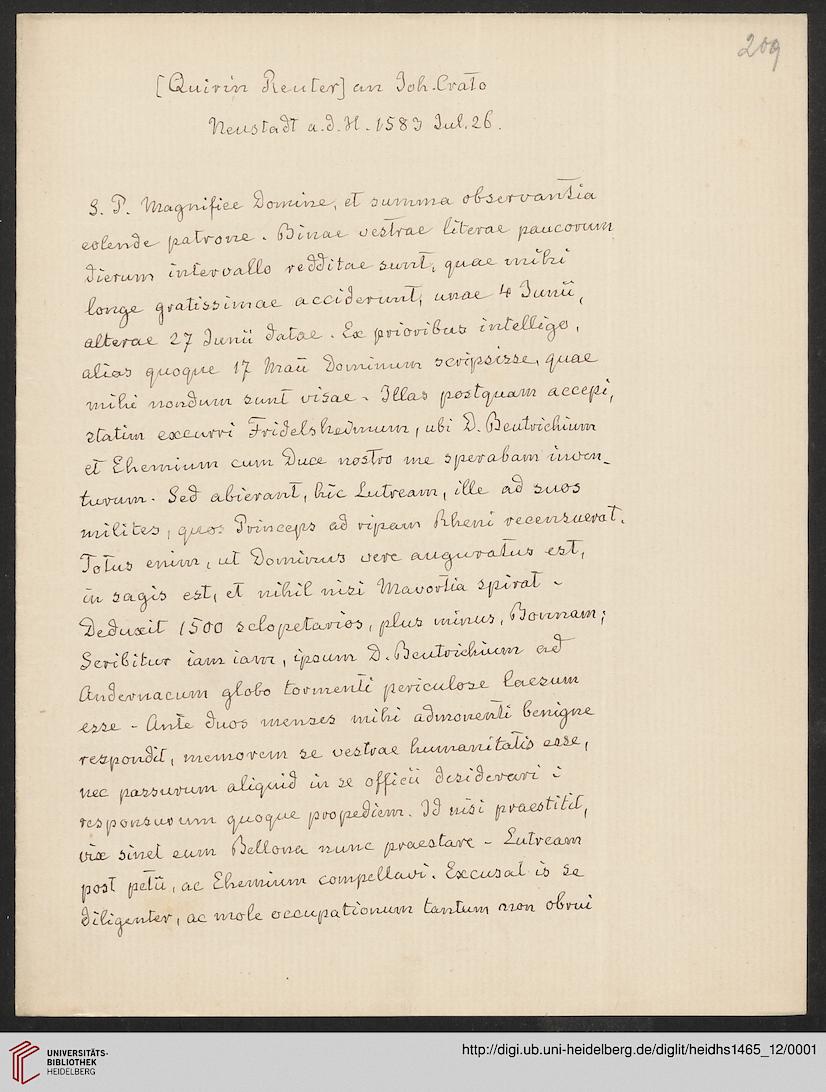 209
[Quirin Reuter] an Joh. Crato
Neustadt a.d.H. 1583 Jul. 26.
S. P. Magnifice Domine, et summa observantia
colende patrone. Binae vestrae literae paucorum
dierum intervallo redditae sunt, quae mihi
longe gratissimae acciderunt, unae 4 Junii,
alterae 27 Junii datae. Ex prioribus intelligo,
alias quoque 17 Maii Dominum scripsisse, quae
mihi nondum sunt visae. Illas postquam accepi,
statim excurri Fridelsheimum, ubi D. Beutrichium
et Ehemium cum Duce nostro me sperabam inven_
turum. Sed abierant, hic Lutream, ille ad suos
milites, quos Princeps ad ripam Rheni recensuerat.
Totus enim, ut Dominus vere auguratus est,
in sagis est, et nihil nisi Mavortia spirat -
Deduxit 1500 sclopetarios, plus minus, Bonnam;
Scribitur iam iam, ipsum D. Beutrichium ad
Andernacum globo tormenti periculose laesum
esse - Ante duos menses mihi admonenti benigne
respondit, memorem se vestrae humanitatis esse,
nec passurum aliquid in se officii desiderari :
responsurum quoque propediem. Id nisi praestitit,
vix sinet eum Bellona nunc praestare - Lutream
post petii, ac Ehemium compellavi. Excusat is se
diligenter, ac mole occupationum tantum non obrui
UNIVERSITÄTS-
BIBLIOTHEK
HEIDELBERG
http://digi.ub.uni-heidelberg.de/diglit/heidhs1465_12/0001